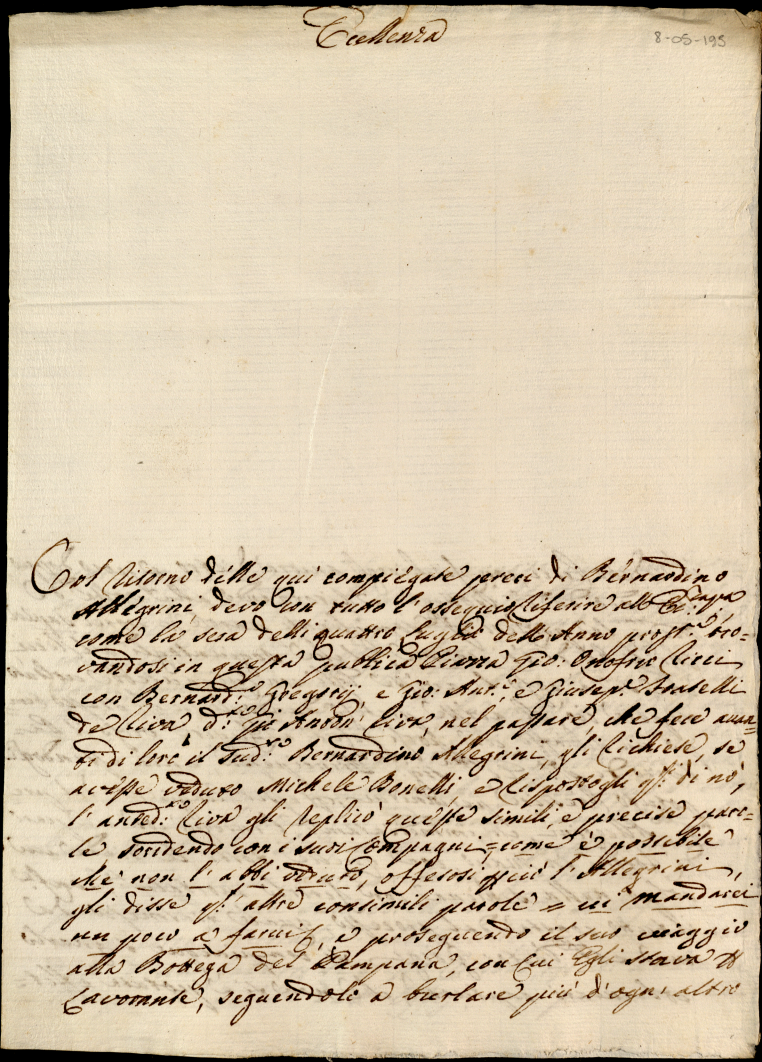 Eccellenza
8-05-195
Col ritorno delle qui compiegate preci di Bernardino
Allegrini, devo con tutto l'ossequio riferire all'
come la sera delli quattro Luglio dell'Anno pross.º tro-
vandosi in questa publica Piazza Gio: Onofrio Ricci
con Bernard.º Gregorij, e Gio: Ant.º, e Giusep.º Fratelli
de Riva, d.º Ant.º Riva, nel passare, che fece avan-
ti di loro il sud.º Bernardino Allegrini, gli richiese, se
avesse veduto Michele Bonelli, e rispostogli q.º di nò,
l'anted.º Riva gli replicò queste simili, e precise paro-
le sorridendo con i suoi Compagni = come è possibile
che non l'abbi veduto, offesosi p ciò l'Allegrini,
gli disse q.º altre consimili parole = mandarci
un poco a , e proseguendo il suo viaggio
alla Bottega del Campana, con cui Egli stava p
Lavorante, seguendolo a burlare più d'ogni altro